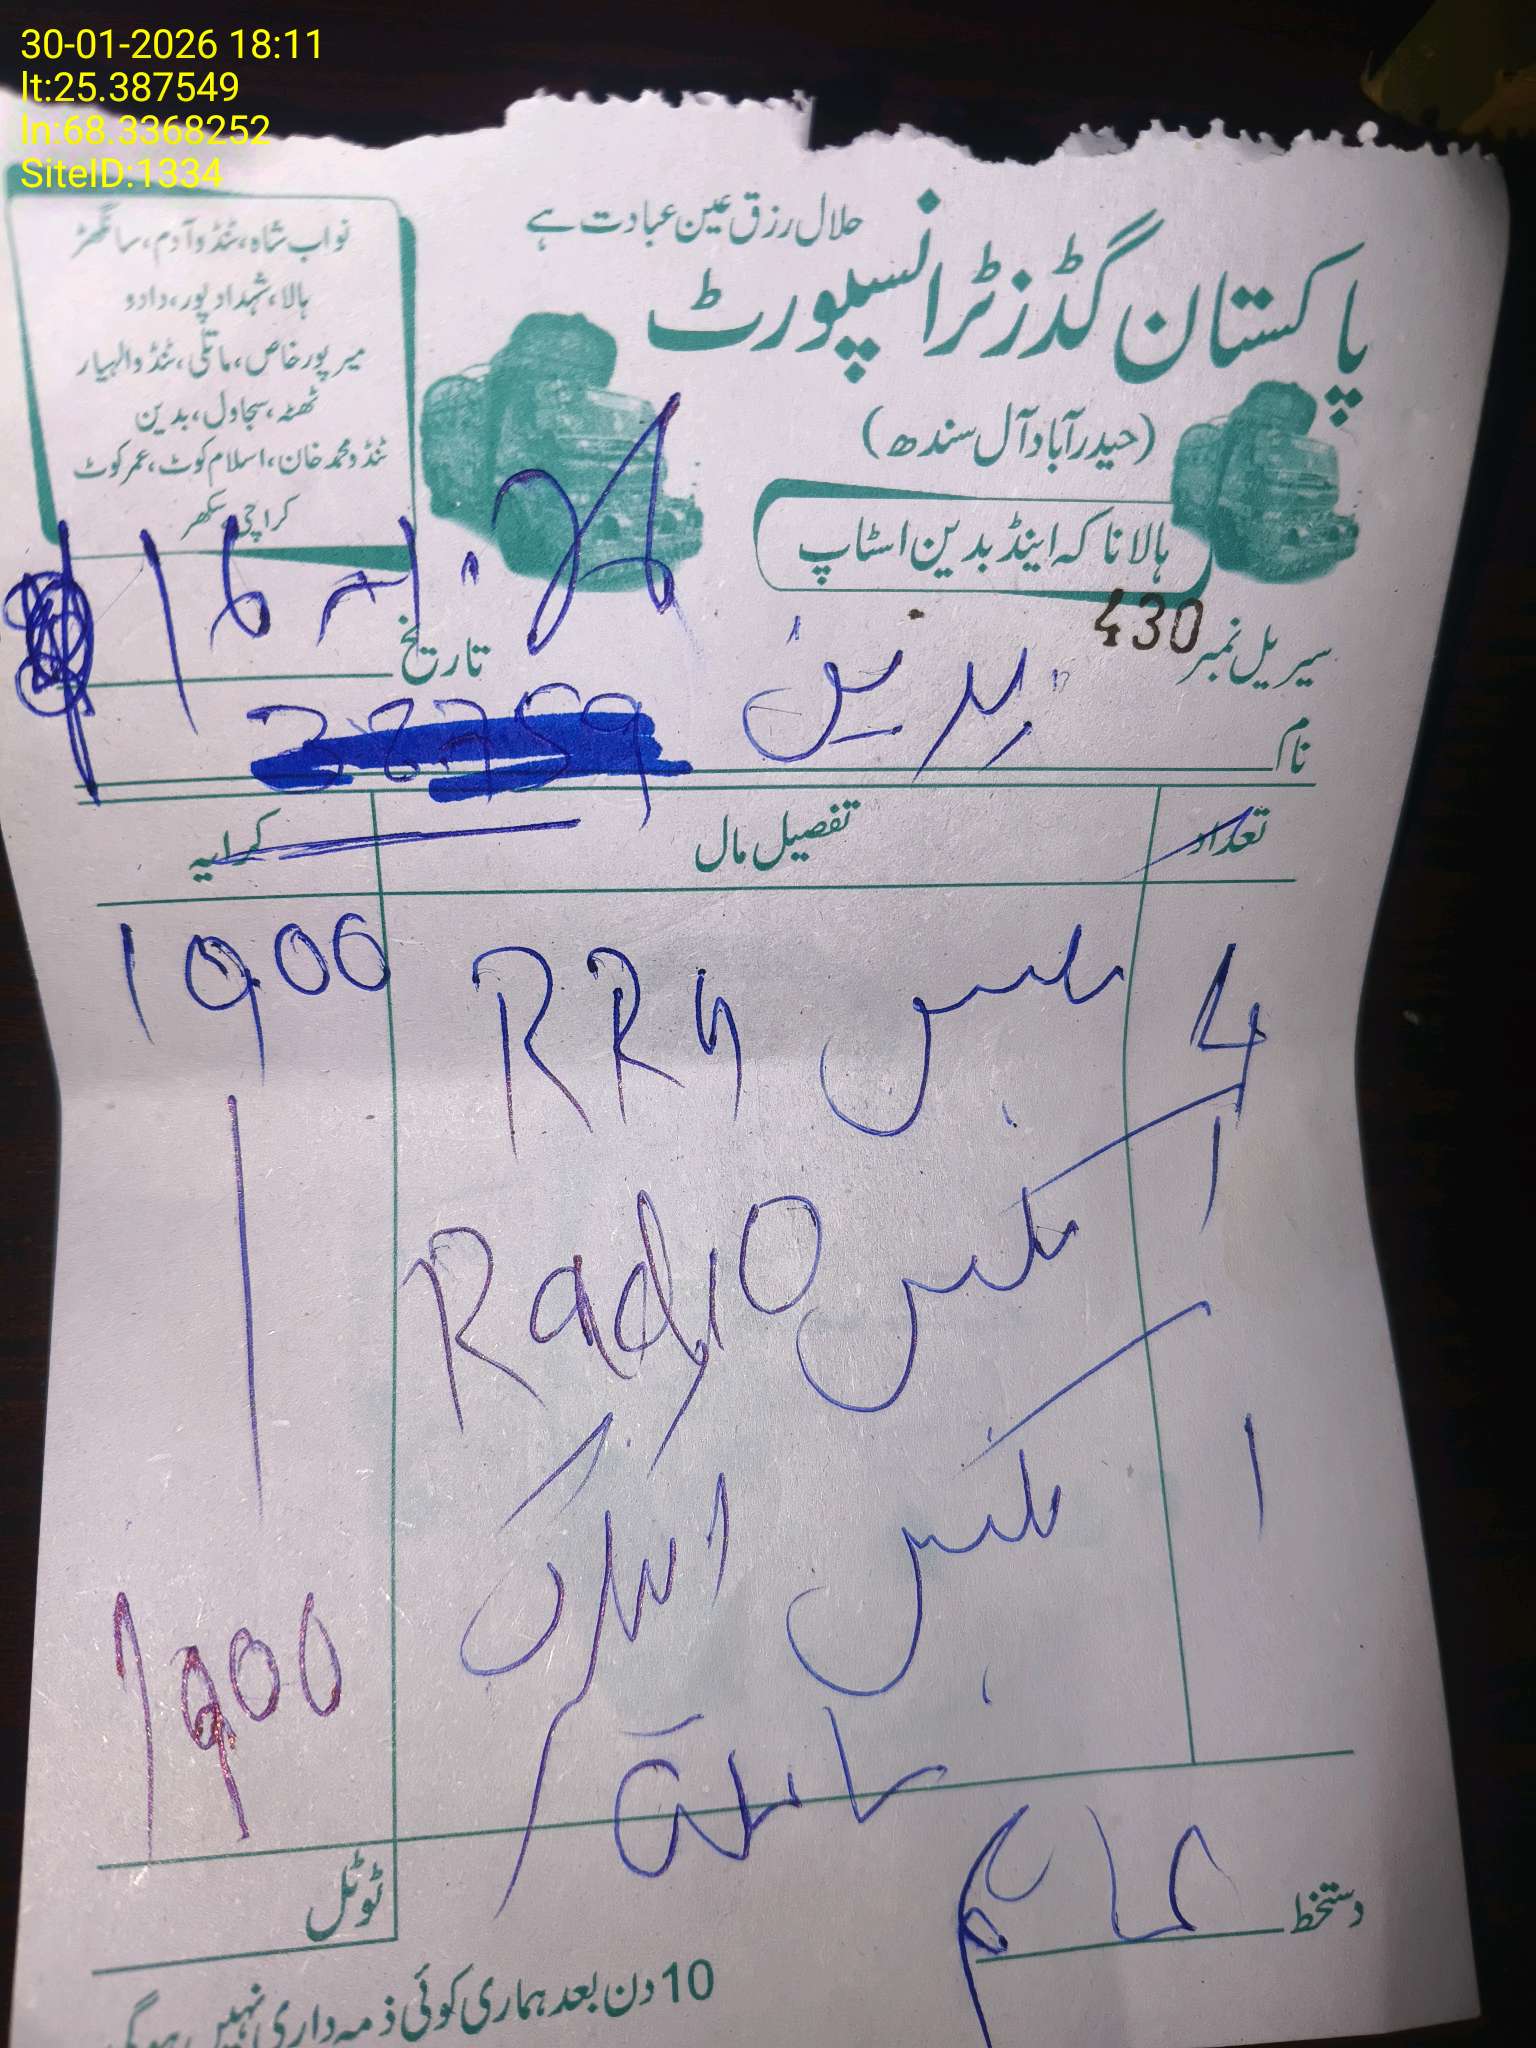 30-01-2026 18:11
lt:25.387549
ln:68.3368252
SiteID:1334
حلال رزق عین عبادت ہے
پاکستان گڈز ٹرانسپورٹ
(حیدرآباد آل سندھ)
ہالا ناکہ اینڈ بدین اسٹاپ
نواب شاہ، ٹنڈوآدم، سانگھڑ
ہالا، شہدادپور، دادو
میرپورخاص، ماتلی، ٹنڈوالہیار
ٹھٹہ، سجاول، بدین
ٹنڈومحمد خان، اسلام کوٹ، عمرکوٹ
کراچی، سکھر
سیریل نمبر 430
تاریخ
نام بدین
تعداد تفصیل مال کرایہ
4 بکس RRH 1900
1 بکس Radio
1 بکس
1900
ٹوٹل
دستخط
10 دن بعد ہماری کوئی ذمہ داری نہیں ہوگی